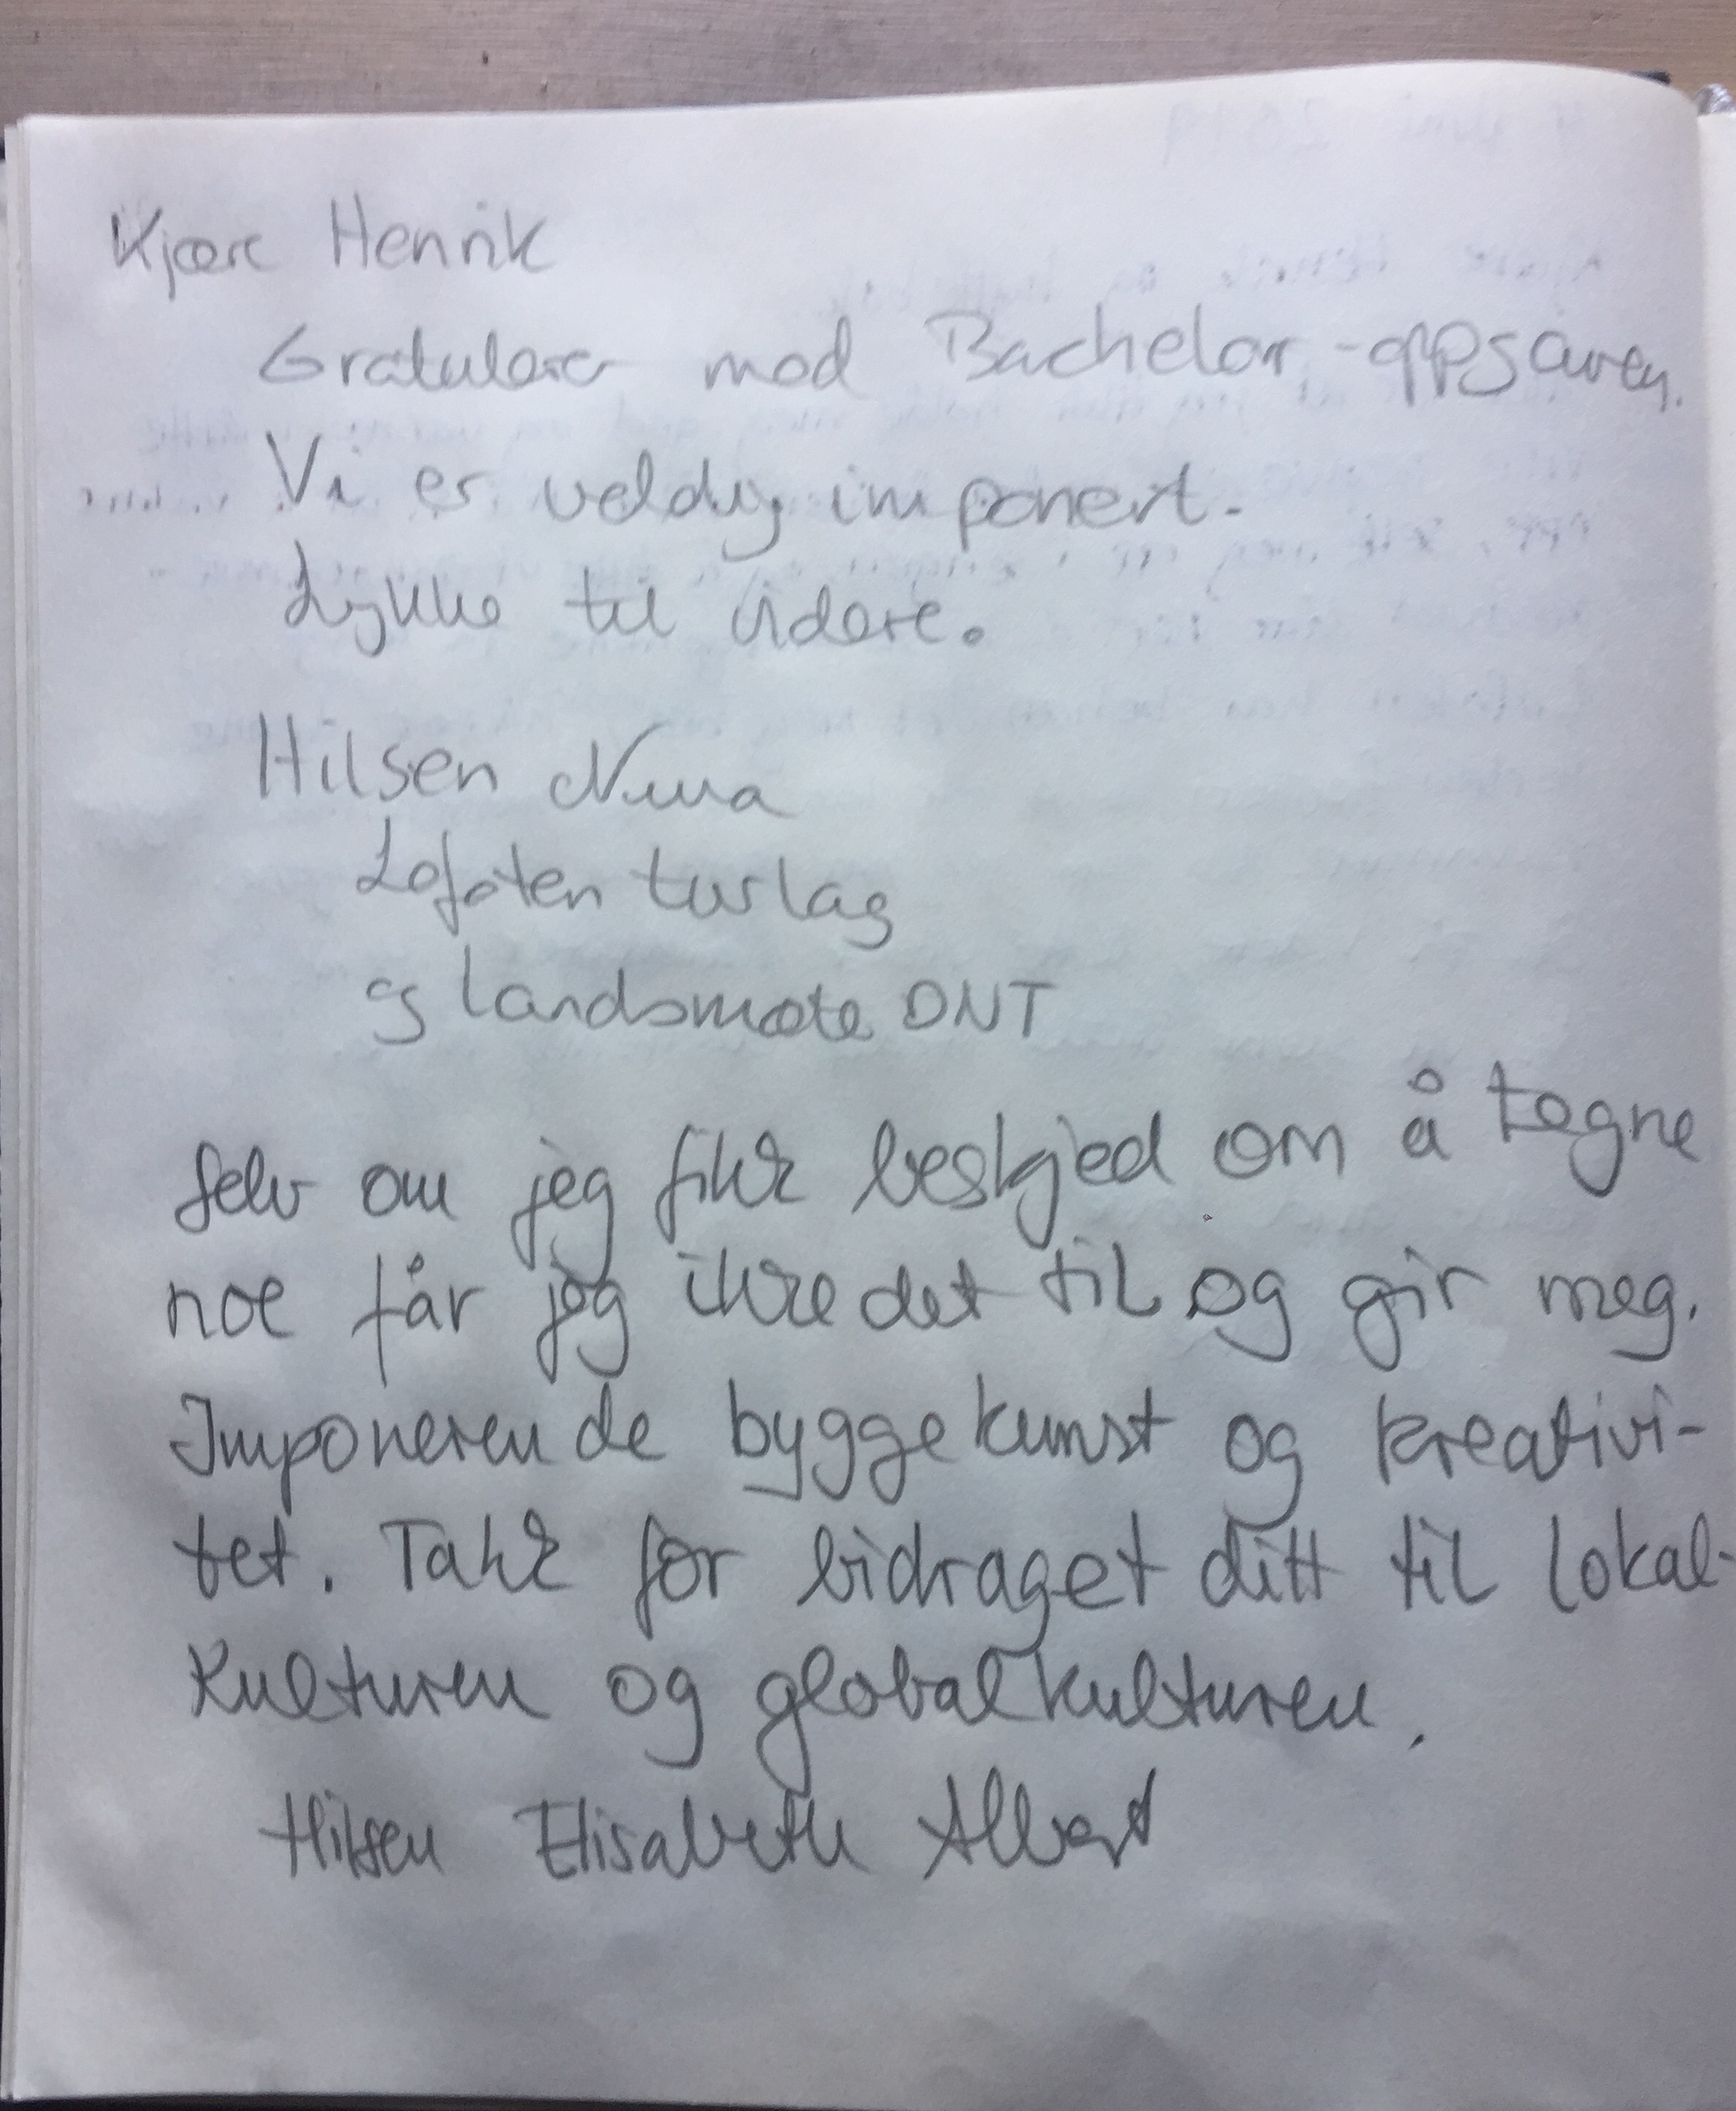 Kjære Henrik
Gratulerer med Bachelor-oppgaven.
Vi er veldig imponert.
Lykke til videre.
Hilsen Nina
Lofoten turlag
og landsmøte DNT
Selv om jeg fikk beskjed om å tegne
noe får jeg ikke det til og gir meg.
Imponerende byggekunst og kreativi-
tet. Takk for bidraget ditt til lokal-
kulturen og globalkulturen.
Hilsen Elisabeth Albert